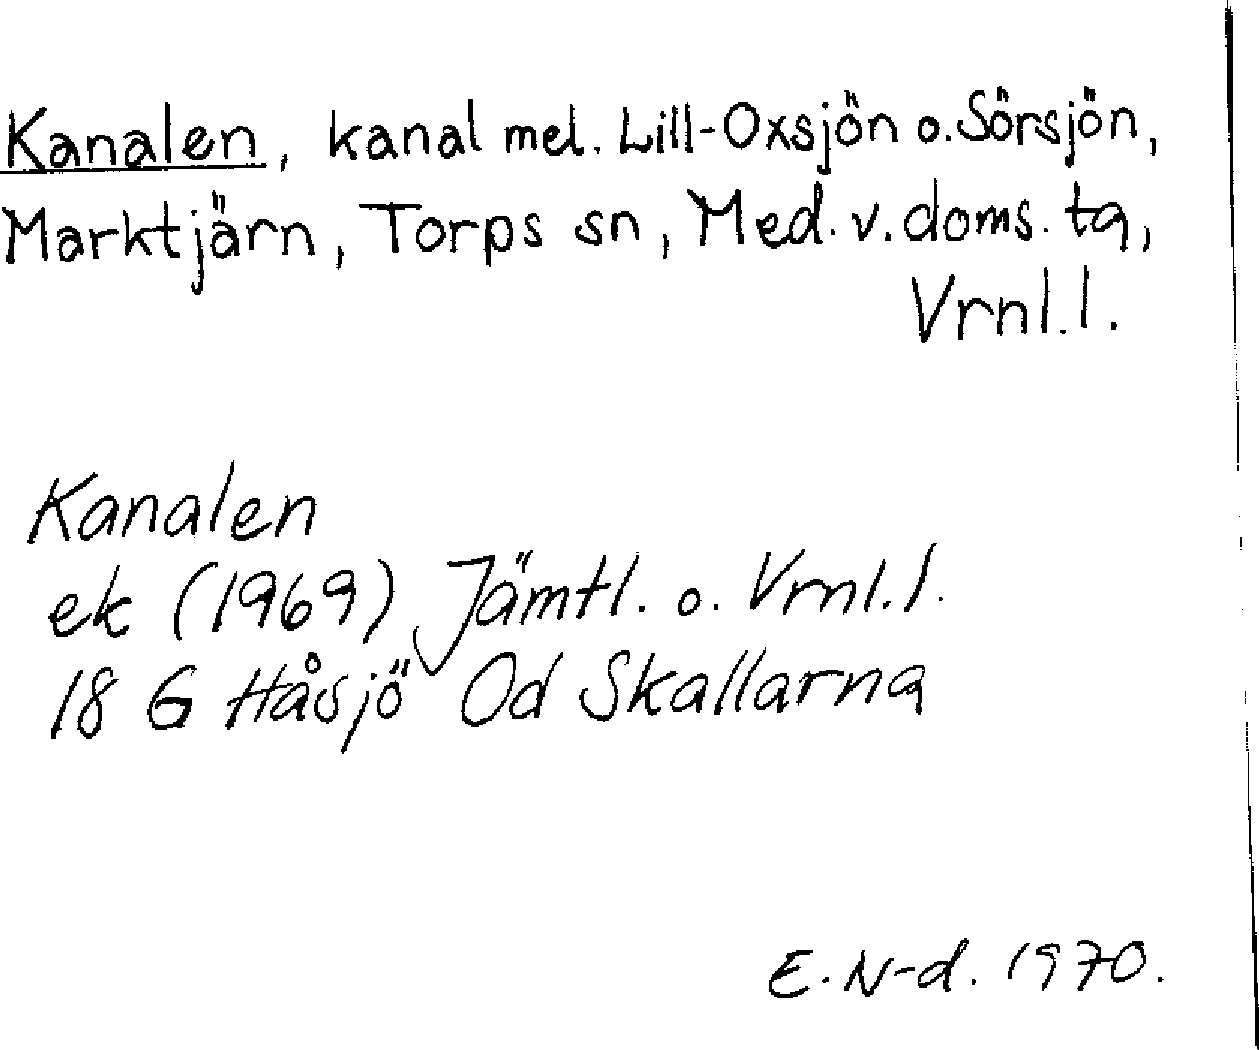 Kanalen, kanal mel. Lill-Oxsjön o. Sörsjön,
Marktjärn, Torps sn, Med. v. doms. tg,
Vrnl. l.
Kanalen
ek (1969) Jämtl. o. Vrnl. l.
18 G Håsjö Od Skallarna
E. N-d. 1970.